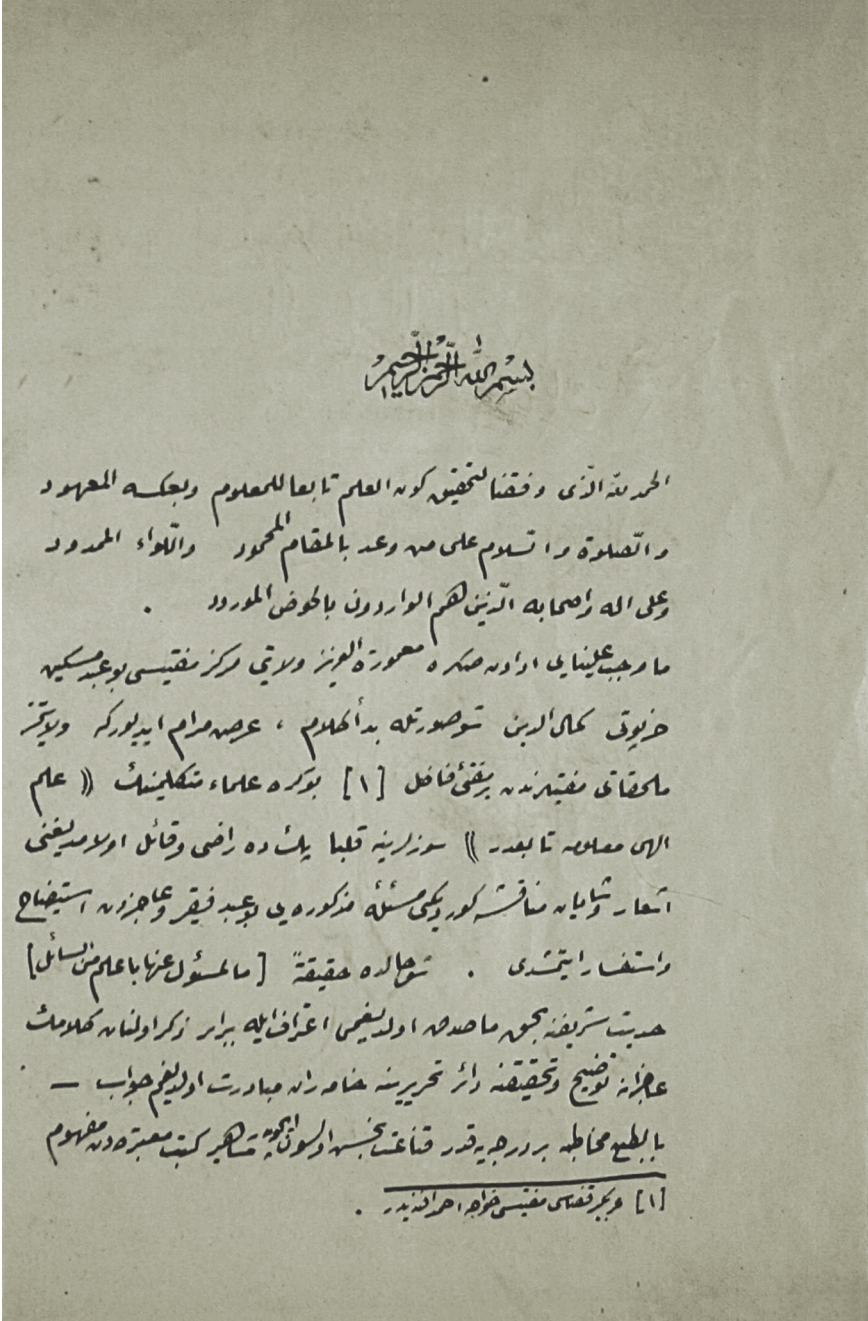 بسم الله الرحمن الرحيم
الحمد لله الّذى وفقنا لتحقيق كون العلم تابعا للمعلوم وبعكسه المعهود
والصّلوة والسّلام على من وعد بالمقام المحمود واللّواء الممدود
وعلى اله واصحابه الّذين هم الواردون بالحوض المورود .
ما وجب علينايى ادادن صكره معمورة العزيز ولايتى مركز مفتيسى بو عبد مسكين
خرپوتى كمال الدين شو صورتله بدأ كلام ، عرض مرام ايديوركه ولايتمز
ملحقاتى مفتيلرندن بر مفتئ فاضل [١] بوكره علماء متكلمينك ( علم
الهى معلومه تابعدر ) سوزلرينه قلبا پك ده راضى وقائل اولامديغنى
اشعار وشايان مناقشه كورديكى مسئلۀ مذكوره يى بو عبد فقير وعاجزدن استيضاح
واستفسار ايتمشدى . شو حالده حقيقةً [ ما المسئول عنها باعلم من السائل ]
حديث شريفنه بحق ماصدق اولديغمى اعتراف ايله برابر ذكر اولنان كلامك
عاجزانه توضيح وتحقيقنه دائر تحريرينه خامه ران مبادرت اولديغم جواب —
بالطبع مخاطبه بر درجه يه قدر قناعت بخش اولسون ايچون مشاهير كتب معتبره دن مفهوم
[١] قضاسى مفتيسى خواجه احمد افنديدر .